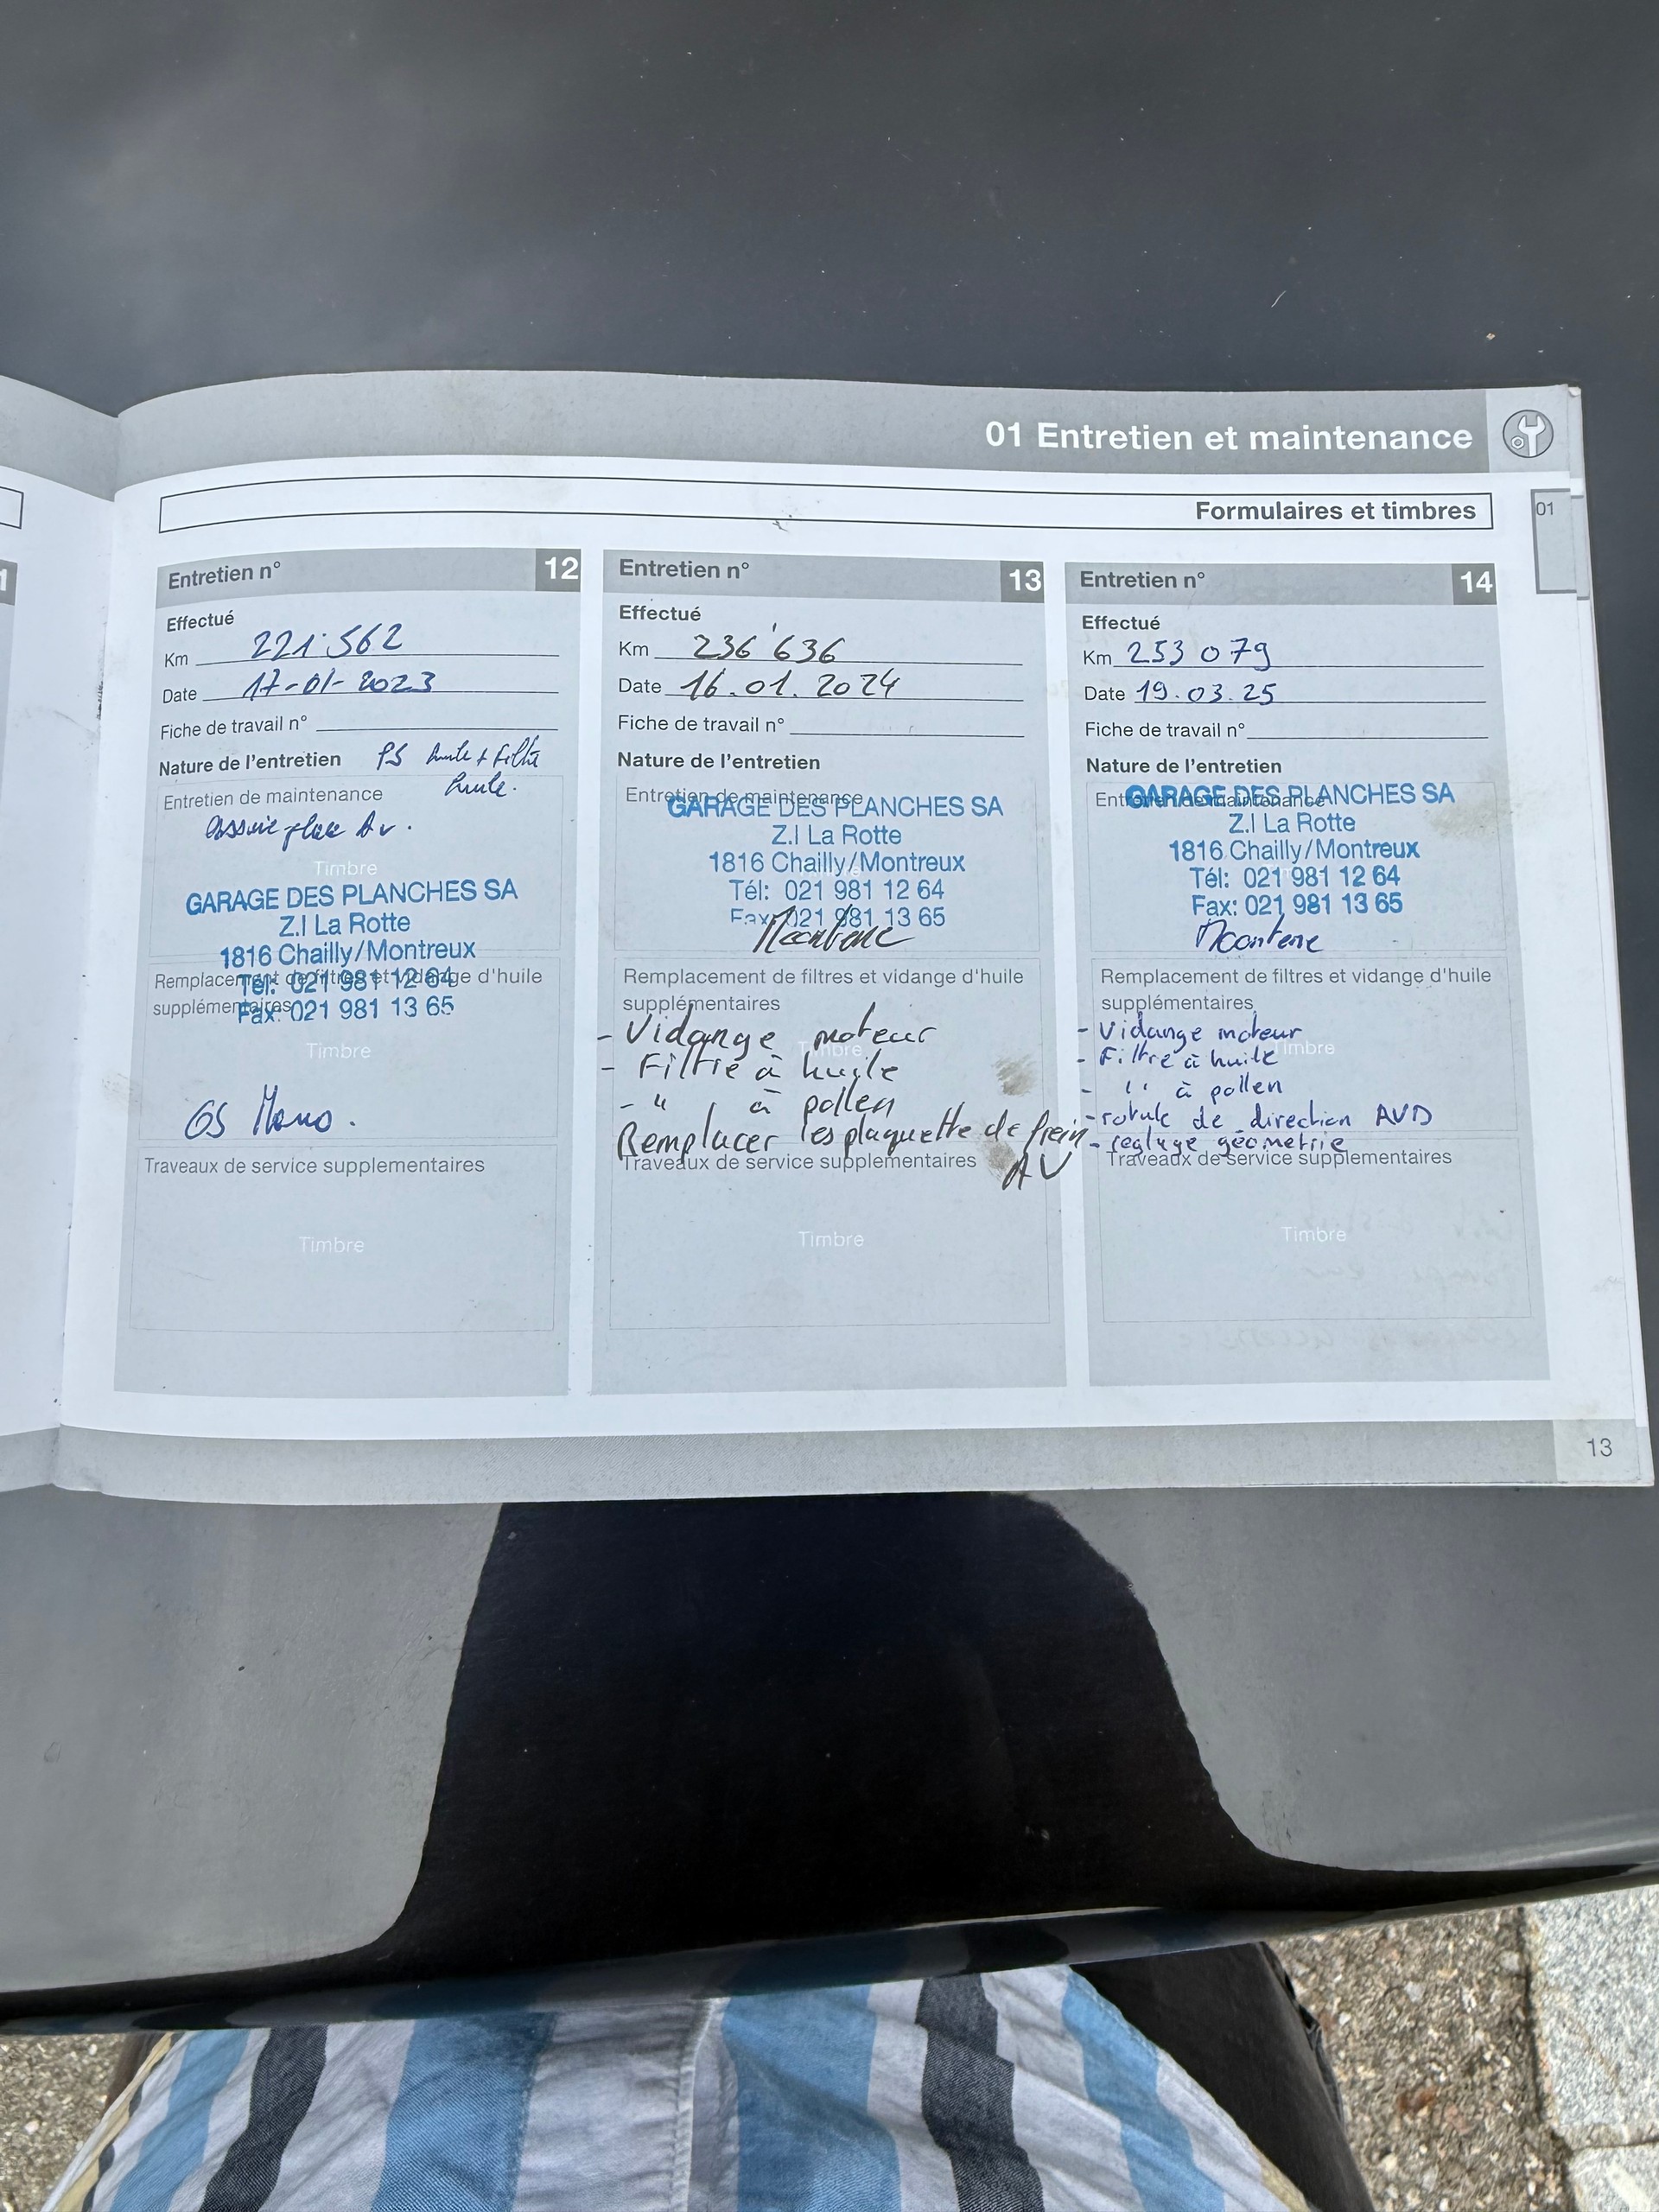 01 Entretien et maintenance
Formulaires et timbres
01
1
Entretien n° 12
Effectué
Km 221'562
Date 17-01-2023
Fiche de travail n°
Nature de l'entretien PS huile + filtre
huile.
Entretien de maintenance
Av.
Timbre
GARAGE DES PLANCHES SA
Z.I La Rotte
1816 Chailly/Montreux
Remplacement de filtres et vidange d'huile
Tél: 021 981 12 64
supplémentaires
Fax: 021 981 13 65
Timbre
Traveaux de service supplementaires
Timbre
Entretien n° 13
Effectué
Km 236'636
Date 16.01.2024
Fiche de travail n°
Nature de l'entretien
Entretien de maintenance
GARAGE DES PLANCHES SA
Z.I La Rotte
1816 Chailly/Montreux
Tél: 021 981 12 64
Fax: 021 981 13 65
Remplacement de filtres et vidange d'huile
supplémentaires
- Vidange moteur
Timbre
- Filtre à huile
- " à pollen
Remplacer les plaquette de frein
AV
Traveaux de service supplementaires
Timbre
Entretien n° 14
Effectué
Km 253 079
Date 19.03.25
Fiche de travail n°
Nature de l'entretien
Entretien de maintenance
GARAGE DES PLANCHES SA
Z.I La Rotte
1816 Chailly/Montreux
Tél: 021 981 12 64
Fax: 021 981 13 65
Remplacement de filtres et vidange d'huile
supplémentaires
- Vidange moteur
Timbre
- Filtre à huile
- " à pollen
- rotule de direction AVD
- reglage géometrie
Traveaux de service supplementaires
Timbre
13